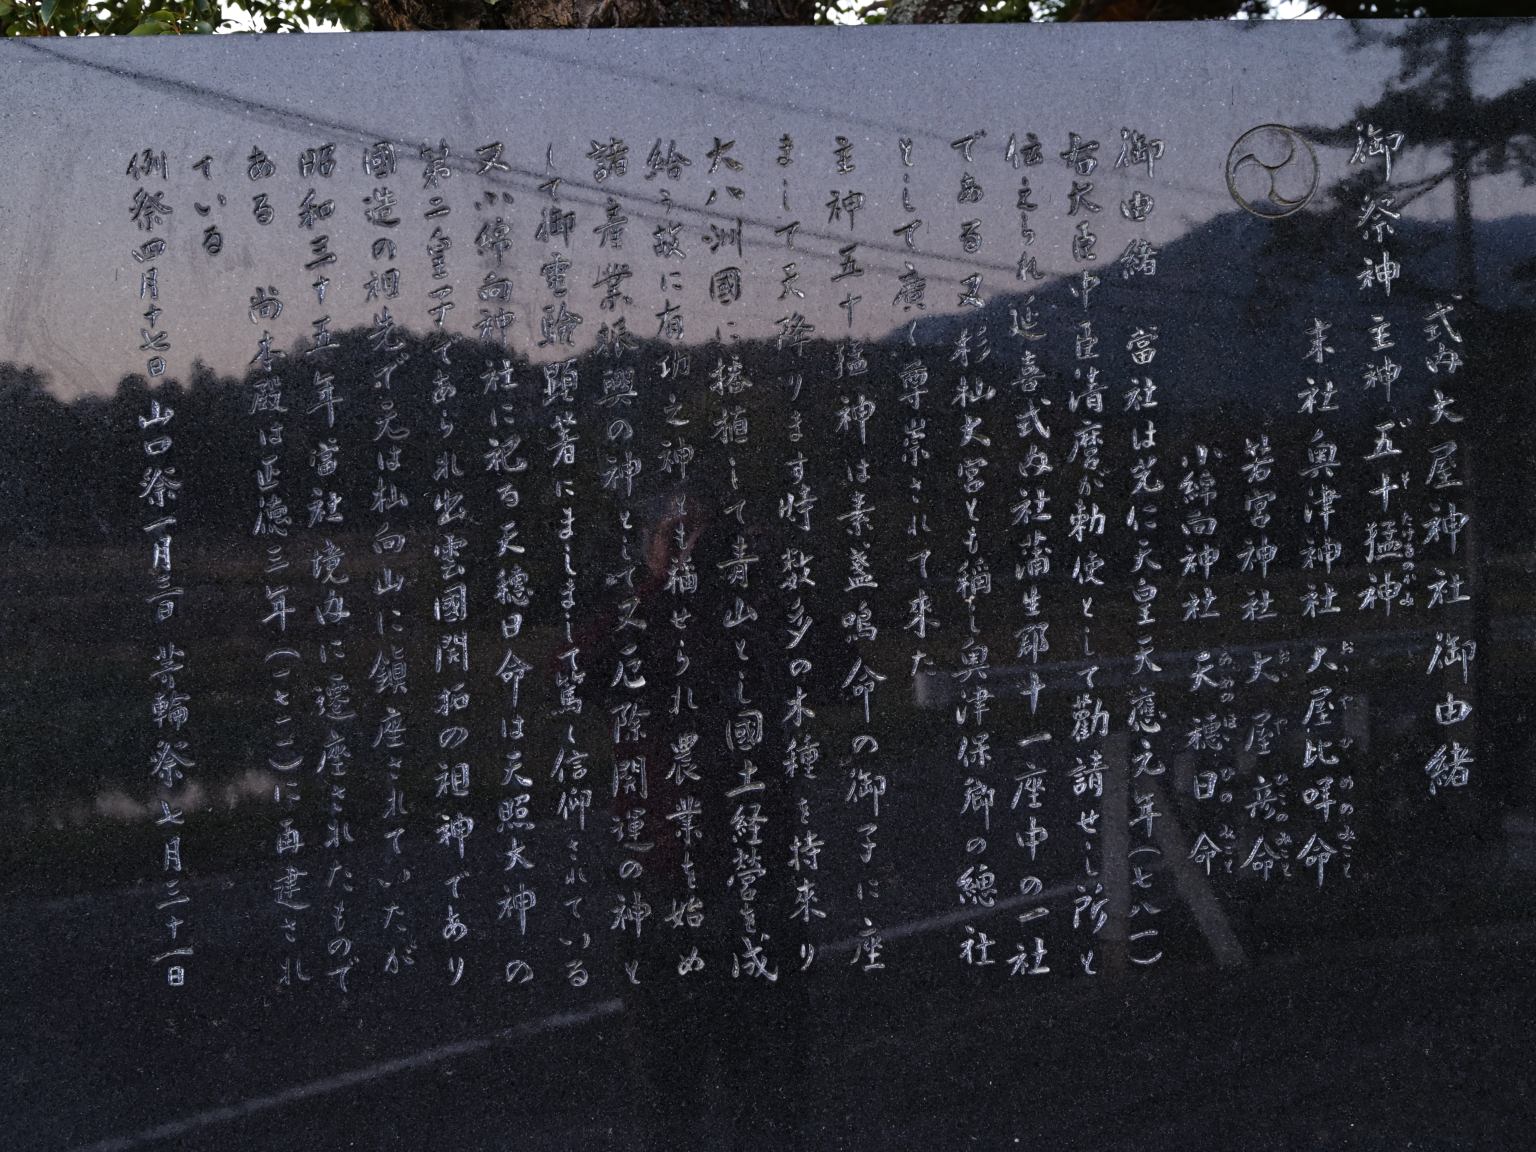 式内大屋神社 御由緒
御祭神 主神 五十猛神
末社 奥津神社 大屋比咩命
若宮神社 大屋彦命
小綿向神社 天穂日命
御由緒 當社は光仁天皇天應元年(七八一)
右大臣中臣清麿が勅使として勸請せし所と
伝えられ延喜式内社蒲生郡十一座中の一社
である又杉杣大宮とも稱し奥津保郷の總社
として廣く尊崇されて来た
主神五十猛神は素盞嗚命の御子に座
まして天降ります時数多の木種を持来り
大八洲國に播植して青山とし國土経営を成
給う故に有功之神とも稱せられ農業を始め
諸産業振興の神として又厄除開運の神と
して御霊験顕著にましまして篤く信仰されている
又小綿向神社に祀る天穂日命は天照大神の
第二皇子であられ出雲國開拓の祖神であり
國造の祖先で元は杣向山に鎮座されていたが
昭和三十五年當社境内に遷座されたもので
ある 尚本殿は正徳三年(一七一三)に再建され
ている
例祭四月十七日 山口祭一月三日 芽輪祭七月二十一日